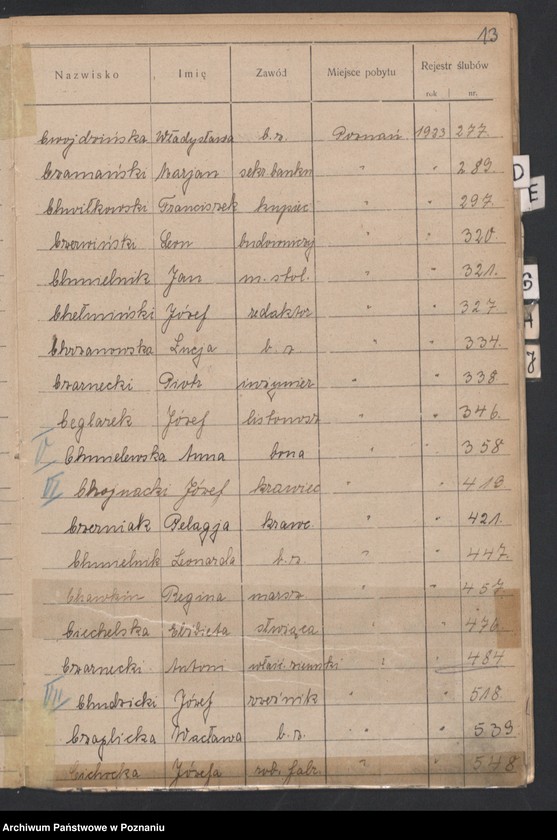 13
Nazwisko Imię Zawód Miejsce pobytu Rejestr ślubów
rok nr.
Cwojdzińska Władysława b. z. Poznań 1923 277
Czamański Marjan sekr. banku " " 289
Chwiłkowski Franciszek kupiec " " 297.
Czerwiński Leon budowniczy " " 320.
Chmielnik Jan m. stol. " " 321.
Chełmiński Józef redaktor " " 327
Chrzanowska Lucja b. z. " " 334.
Czarnecki Piotr inżynier " " 338
Ceglarek Józef listonosz " " 346.
V Chmielewska Anna bona " " 358
VI Chojnacki Józef krawiec " " 419.
Czerniak Pelagja krawc. " " 421.
Chmielnik Leonarda b. z. " " 447.
Regina " " 457
Ciechelska Elżbieta służąca " " 476
Czarnecki Antoni właśc. ziemski " " 484
VII Chudzicki Józef rzeźnik " " 518
Czaplicka Wacława b. z. " " 539
Cichocka Józefa rob. fabr. " " 548
Archiwum Państwowe w Poznaniu
D
E
G
H
J